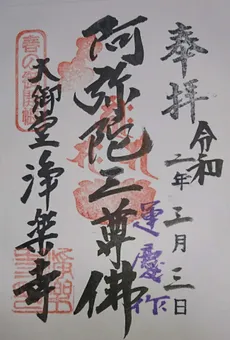 奉拝
令和二年三月三日
運慶作
阿弥陀三尊佛
大御堂浄楽寺